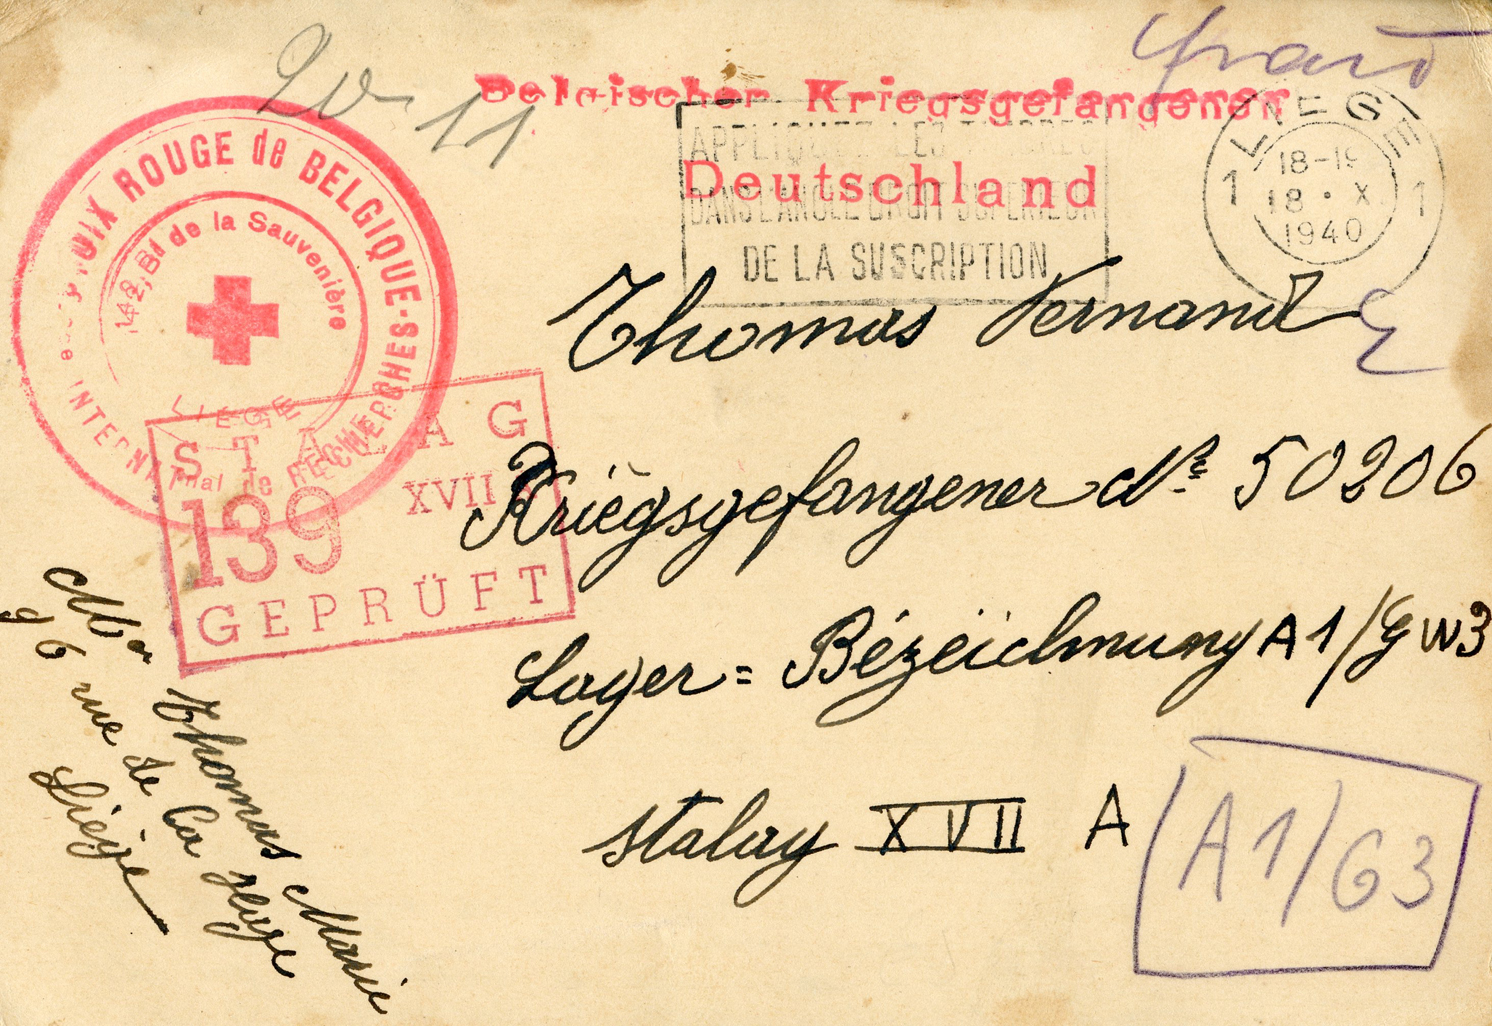 20-11
Belgischer Kriegsgefangener
Deutschland
APPLIQUEZ LES TIMBRES
DANS L'ANGLE DROIT SUPERIEUR
DE LA SUSCRIPTION
LIEGE 1
1 1
18-19
18 • X
1940
CROIX ROUGE de BELGIQUE-
INTERNATIONAL de RECHERCHES-
142, Bd de la Sauvenière
LIEGE
STALAG
XVII A
139
GEPRÜFT
Thomas Fernand
Kriégsgefangener Nº 50206
Lager = Bézeichnung A1/GW3
stalag XVII A
A1/G3
Mme Thomas Marie
96 rue de la
Liège